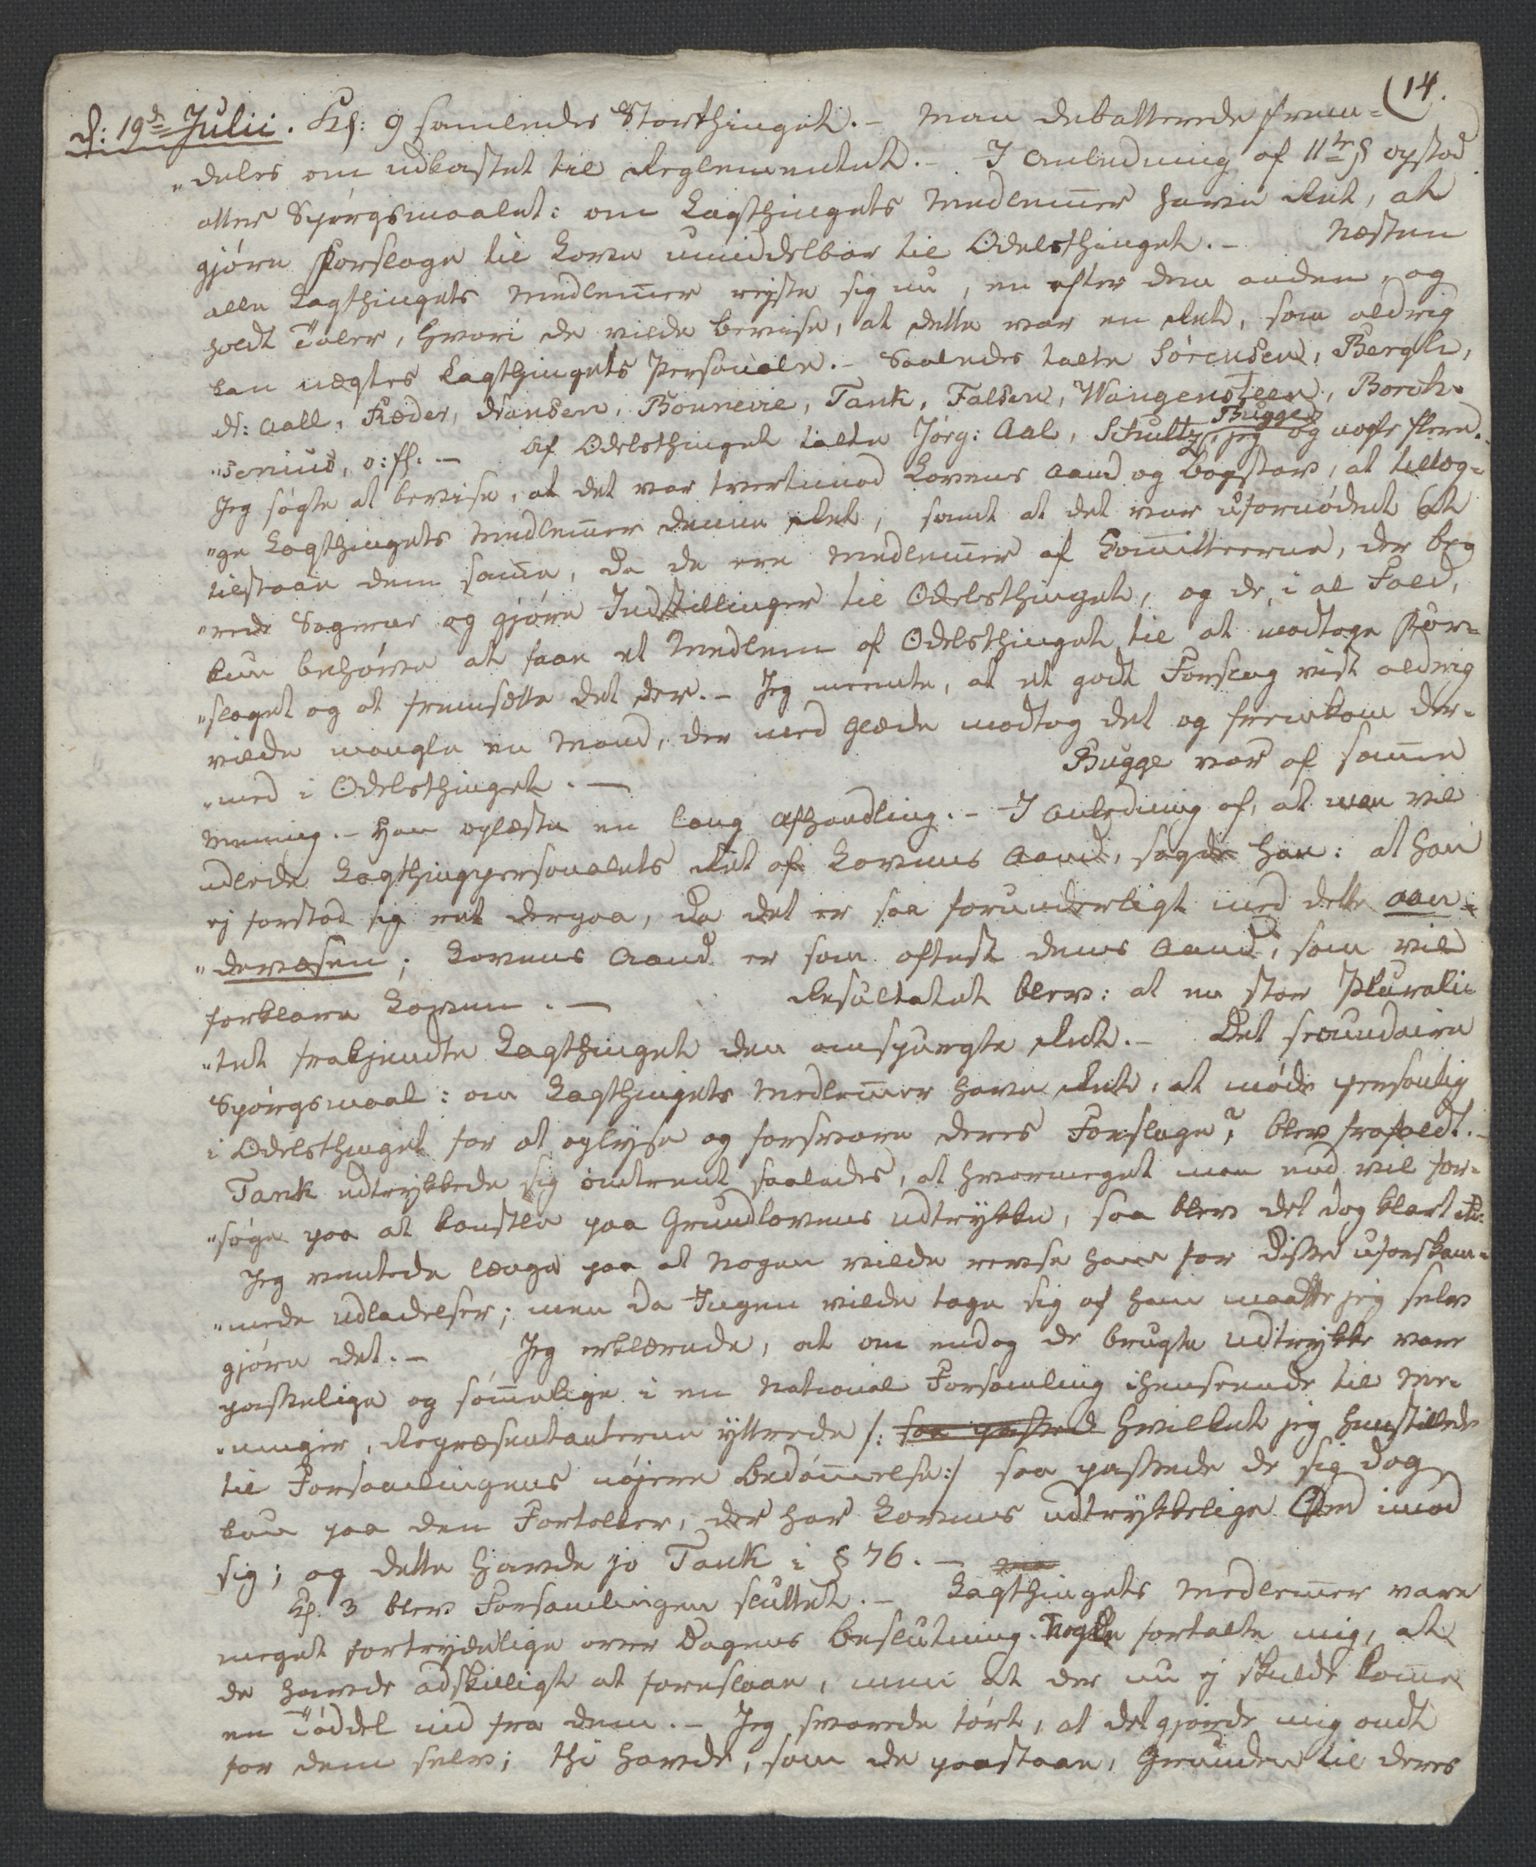 14.
d: 19de Julii. Kl: 9 samledes Storthinget. - Man debatterede frem-
"deles om udkastet til Reglementet. - I Anledning af 11te § opstod
atter Spørgsmaalet: om Lagthingets Medlem̄er have Ret, at
gjøre Forslage til Love umiddelbar til Odelsthinget. - Næsten
alle Lagthingets Medlem̄er rejste sig nu, en efter den anden, og
holdt Taler, hvori de vilde bevise, at dette var en Ret, som aldrig
kan nægtes Lagthingets Personale. - Saaledes talte Sørensen, Bergh,
N: Aall, Ræder, Nansen, Bonnevie, Tank, Falsen, Wangensteen, Borch-
"senius, o: fl. - Af Odelsthinget talte Jørg: Aal, Schultz, Bugge, jeg og nogle flere.
Jeg søgte at bevise, at det var tvertimod Lovens Aand og Bogstav, at tillæg-
"ge Lagthingets Medlem̄er denne Ret, samt at det var ufornødent at
tilstaae dem sam̄e, da de ere Medlem̄er af Com̄itteerne, der beg
"rede Sagerne og gjøre Indstillinger til Odelsthinget, og de, i al Fald,
kun behøve at faae et Medlem af Odelsthinget til at modtage For-
"slaget og at fremsætte det der. - Jeg meente, at et godt Forslag vist aldrig
vilde mangle en Mand, der med Glæde modtog det og fremkom der-
"med i Odelsthinget. - Bugge var af sam̄e
Mening. - Han oplæste en lang Afhandling. - I Anledning af, at man vil
udlede Lagthingpersonalets Ret af Lovens Aand, sagde han: at han
ej forstod sig ret derpaa, da det er saa forunderligt med dette Aan-
"devæsen; Lovens Aand er som oftest dens Aand, som vil
forklare Loven. - Resultatet blev: at en stor Plurali-
"tet frakjendte Lagthinget den omspurgte Ret. - Det secundaire
Spørgsmaal: om Lagthingets Medlem̄er have Ret, at møde personlig
i Odelsthinget for at oplyse og forsvare deres Forslage?, blev frafaldt. -
Tank udtrykkede sig omtrent saaledes, at hvormeget man end vil for-
"søge paa at konstle paa Grundlovens udtrykke, saa blev det dog klart etc:
Jeg ventede længe paa at Nogen vilde revse ham for disse uforskam-
"mede udladelser; men da Ingen vilde tage sig af ham maatte jeg selv
gjøre det. - Jeg erklærede, at om endog de brugte udtrykke vare
passelige og søm̄elige i en National Forsamling ihenseende til Me-
"ninger, Repræsentanterne yttrede /: saa passed hvilket jeg henstillede
til Forsamlingens nøjere Bedøm̄else :/ saa passede de sig dog
kun paa den Fortolker, der har Lovens udtrykkelige Ord imod
sig; og dette havde jo Tank i § 76. -
Kl. 3 blev Forsamlingen sluttet. - Lagthingets Medlem̄er vare
meget fortrydelige over Dagens Beslutning. Nogle fortalte mig, at
de havde adskilligt at foreslaae, men at der nu ej skulde kom̄e
en Tøddel ind fra dem. - Jeg svarede tørt, at det gjorde mig ondt
for dem selv; thi havde, som de paastaae, Grunden til deres